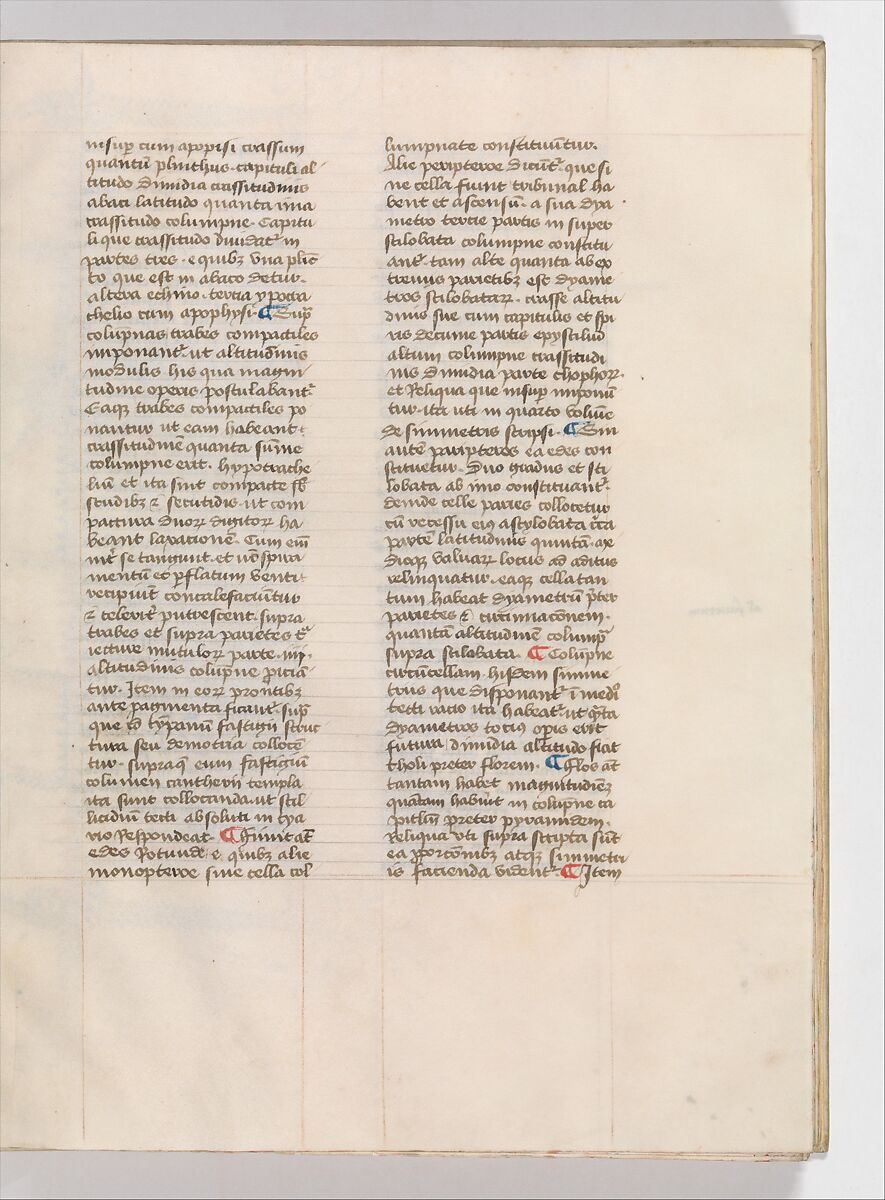 insup cum apopisi crassum
quantū plinthus. capituli al-
titudo dimidia crassitudinis
abaci latitudo quanta ima
crassitudo columpne. Capitu
li que crassitudo diuidat in
partes tres. e quibz vna plin
to que est in abaco detur.
altera echino. tercia ypotra
chelio cum apophysi. ¶ Sup
columpnas trabes compactiles
imponant ut altitudinis
modulis his qua magni-
tudine operis postulabant
Eaqz trabes compactiles po
nantur ut eam habeant
crassitudinem quanta sūme
columpne erit. hypotrache
liū et ita sint compacte sb
scudibz & securidis. ut com
pactura duorz digitorz ha
beant laxationē. Cum em
int se tangunt. et nō spira
mentū et pflatum venti
recipiūt concalefaciūtur
& celerit putrescent. supra
trabes et supra parietes tra
iecture mutulorz parte .iiii.
altitudinis colupne proician
tur. Item in eorz frontibz
ante pagmenta ficant. sup
que id tympanū fastigii struc
tura seu demotria colloce
tur. supraqz eum fastigiū
columen cantherii templa
ita sunt collocanda. ut stil
licidiū tecti absoluti in cya
rio respondeat. ¶ Fiunt at
edes rotunde. e quibz alie
monopteroe sine cella col
lumpnate constituūtur.
Alie peripteroe dicūt. que si
ne cella fiunt tribunal ha
bent et ascensū. a sua dya
metro tercie partis in super
stilobata columpne constitu
ant. tam alte quanta ab ex
tremis parietibz est dyame
tros stilobatarz. crasse altitu
dinis sue cum capitulis et spi
ris decume partis epystiliū
altum columpne crassitudi
nis dimidia parte chophorz.
et reliqua que insup imponū
tur. ita uti in quarto volūe
de simmetris scripsi. ¶ Sin
autē peripteros ea edes con
stituetur. duo gradus et sti
lobata ab imo constituant.
deinde celle paries collocetur
cū recessu eius a stylobata circa
partē latitudinis quintā. ae
dicqz valuarz locus ad aditus
relinquatur. eaqz cella tan
tum habeat dyametrū pter
parietes & circinnaconem.
quantā altitudinē columpna
supra stilobata. ¶ Colūpne
circū cellam. hisdem simme
triis que disponant. i medio
tecti racio ita habeat. ut quanta
dyametros tocius opis erit
futura dimidia altitudo fiat
tholi preter florem. ¶ Flos at
tantam habet magnitudinēz
quātam habuit in colupne ca
pitlū preter pyramidem.
Reliqua vti supra scripta sūt
ea pporconibz atqz simmetri
is facienda vident. ¶ Item